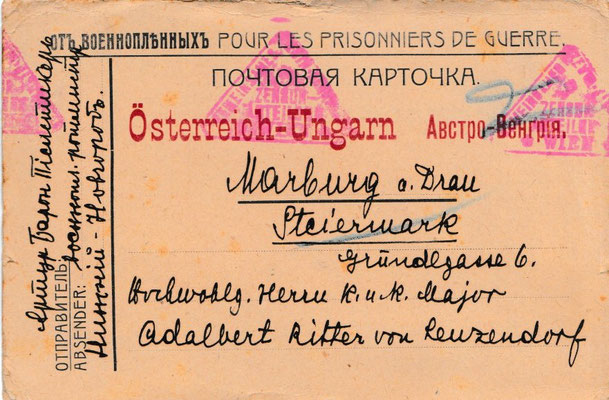 ОТЪ ВОЕННОПЛѢННЫХЪ POUR LES PRISONNIERS DE GUERRE.
ПОЧТОВАЯ КАРТОЧКА.
Österreich-Ungarn Австро-Венгрія.
Marburg a. Drau
Steiermark
Gründlgasse 6.
Hochwohlg. Herrn k. u. k. Major
Adalbert Ritter von Leuzendorf
ОТПРАВИТЕЛЬ:
ABSENDER:
Артур Барон
военнопл.
Нижній-Новгородъ.
ZENSUR
WIEN